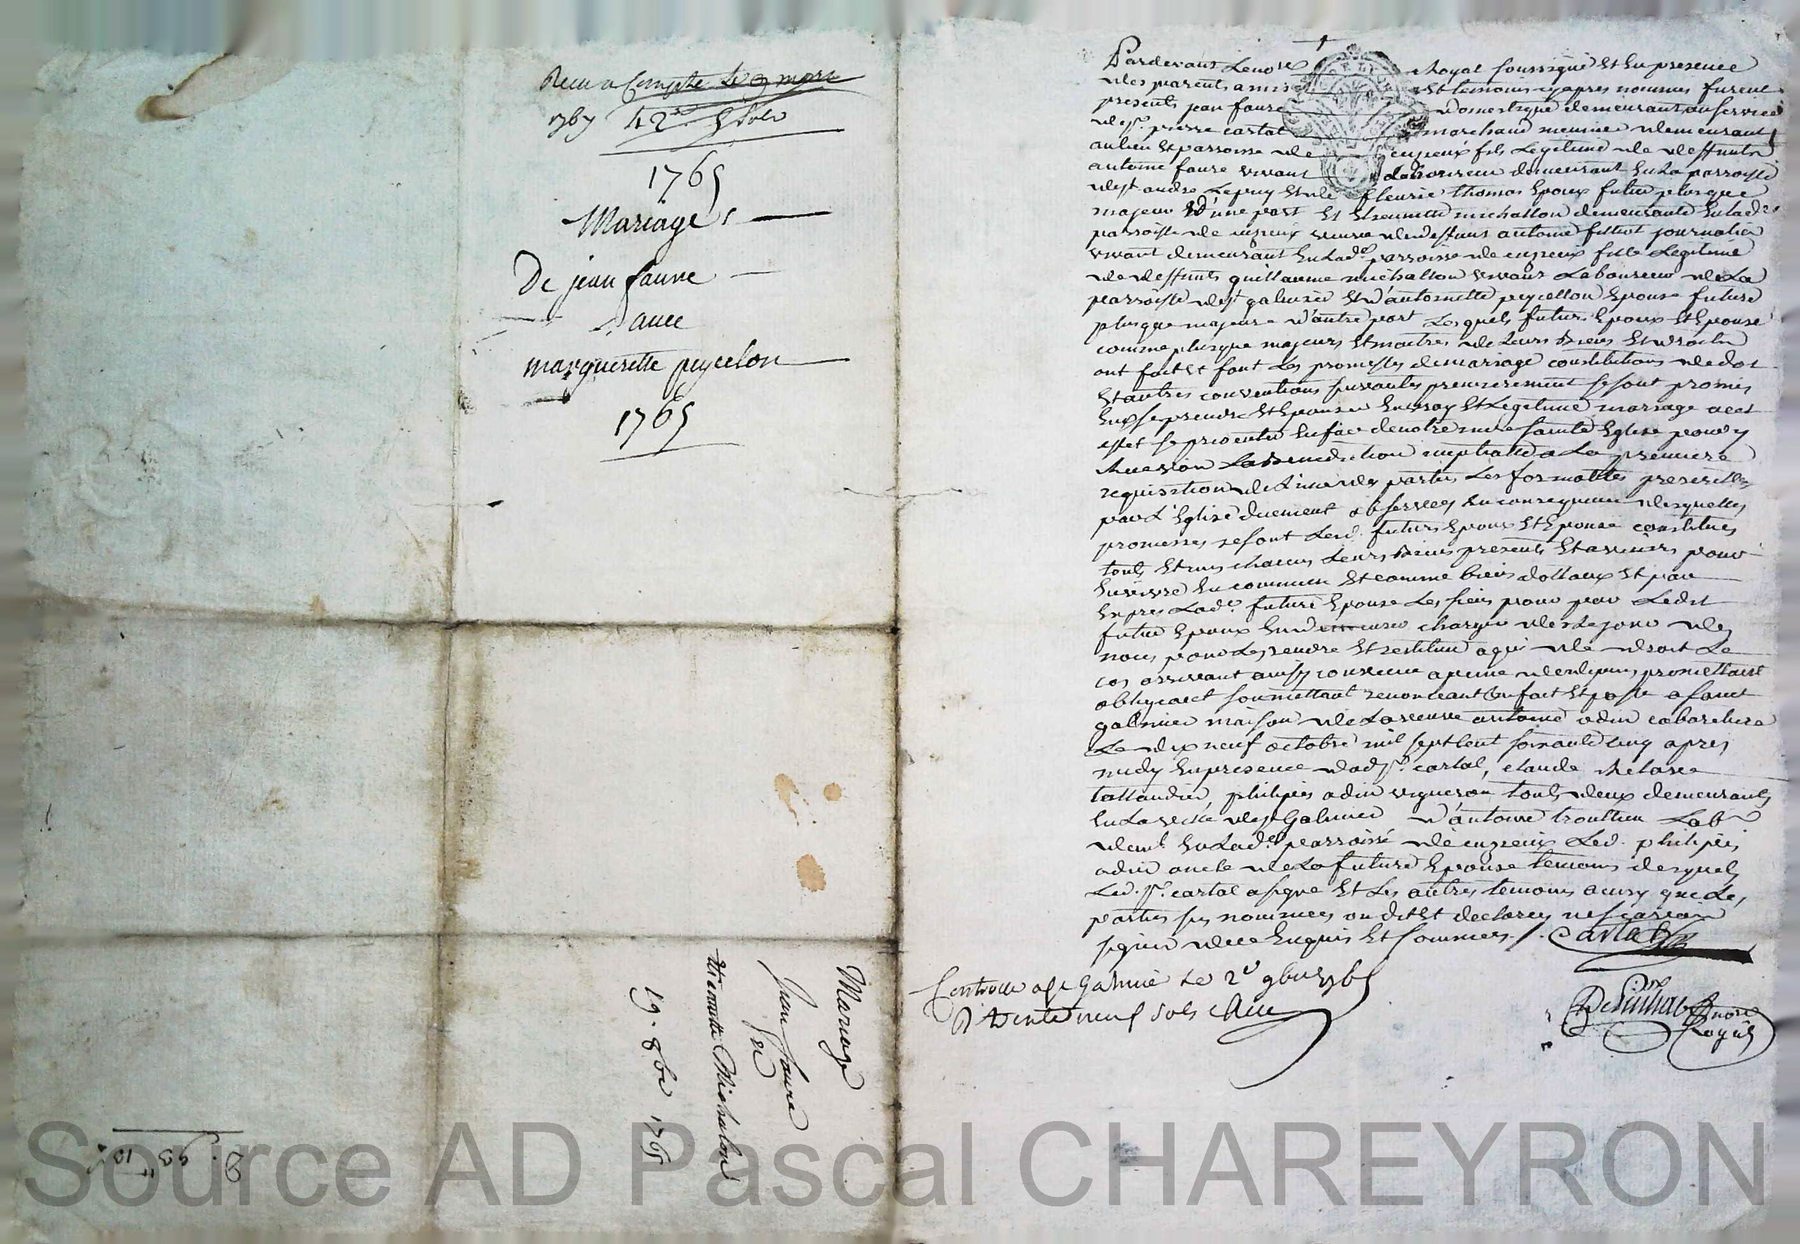 Receu a Compte Le 9 mars
1767 42# 5 sols
1765
Mariage
De jean faure
avec
marguerette peycelon
1765
Mariage
Jean faure
&
Etiennette Michalon
19. 8bre 1765
Pardevant Le nore Royal soussigné Et En presence
des parents amis Et temoins cy apres nommes furent
presents jean faure domestique demeurant au service
de sr. pierre cartal marchand meunier demeurant
au lieu Et parroisse de cuzieux fils Legitime de deffunts
antoine faure vivant Laboureur demeurant En La parroisse
de st andre Lepuy Et de fleurie thomas Epoux futur plusque
majeur d'une part Et Etiennette michallon demeurante En lad.
parroisse de cuzieux veuve de deffunt antoine journalier
vivant demeurant En Lad. parroisse de cuzieux fille Legitime
de deffunts guillaume michallon vivant Laboureur de La
parroisse de st galmier Et d'antoinette peycellon Epouse future
plusque majeure d'autre part Lesquels futurs Epoux Et Epouse
comme plusque majeurs Et maitres de Leurs biens Et droits
ont fait Et font Les promesses de mariage constitutions de dot
Et autres conventions suivantes premierement se sont promis
Eux se prendre Et Epouser En vray Et Legitime mariage a cet
effet se presenter En face de notre mere sainte Eglise pour y
recevoir La benediction nuptialle a La premiere
requisition de L'une des parties Les formalittes prescrittes
par L'Eglise duement observées En consequence desquelles
promesses se sont Lesd. futurs Epoux Et Epouse constitués
touts Et uns chacuns Leurs biens presents Et avenirs pour
En vivre En commun Et comme biens dottaux Et par
Expres Lad. future Epouse Les siens pour par Ledit
futur Epoux En demeurer chargé des Le jour de
noces pour Les rendre Et restituer a qui de droit Le
cas arrivant ainsy convenu a peine de depens promettant
obligeant soumettant renonceant Con fait Et passé a saint
galmier maison de La veuve antoine odin cabaretiere
Le dix neuf octobre mil sept Cent soixante cinq apres
midy En presence dud sr. cartal, claude
taillandier, philipes odin vigneron touts deux demeurants
En La ville de st Galmier d'antoine Lab.
demt En Lad. parroisse de cuzieux Led. philipes
odin oncle de La future Epouse temoins desquels
Led. sr. cartal a signé Et Les autres temoins ainsy que Les
parties sus nommées on dit Et declarés ne scavoir
signer de ce Enquis Et sommés. Cartal
Controllé a St Galmié Le 2e 9bre 1765
R vingt neuf sols
nore
Royal
Source AD Pascal CHAREYRON